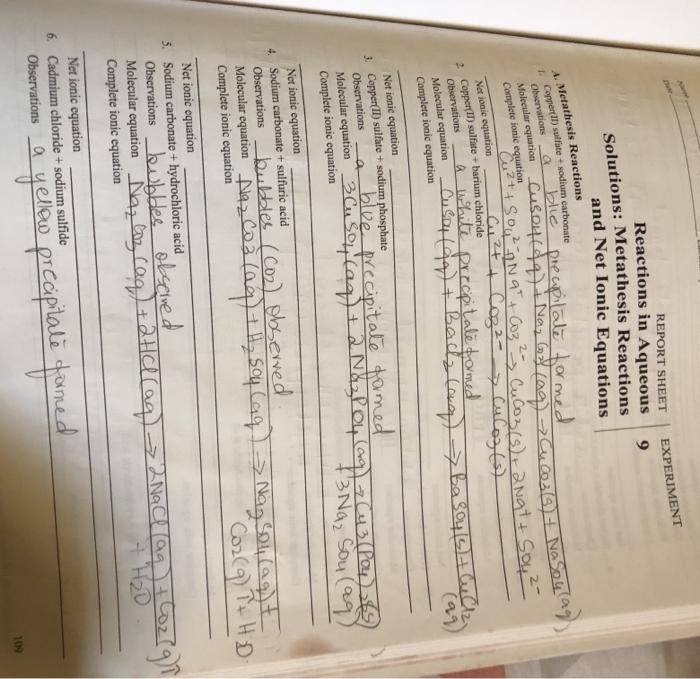 REPORT SHEET EXPERIMENT
Reactions in Aqueous 9
Solutions: Metathesis Reactions
and Net Ionic Equations
A. Metathesis Reactions
1. Copper(II) sulfate + sodium carbonate
Observations a blue precipitate formed
Molecular equation CuSO4(aq) + Na2CO3(aq) → CuCO3(s) + NaSO4(aq)
Complete ionic equation
Cu2+ + SO4 2- + 2Na+ + CO3 2- → CuCO3(s) + 2Na+ + SO4 2-
Net ionic equation Cu2+ + CO3 2- → CuCO3(s)
2. Copper(II) sulfate + barium chloride
Observations a white precipitate formed
Molecular equation CuSO4(aq) + BaCl2(aq) → BaSO4(s) + CuCl2 (aq)
Complete ionic equation
Net ionic equation
3. Copper(II) sulfate + sodium phosphate
Observations a blue precipitate formed
Molecular equation 3CuSO4(aq) + 2Na3PO4(aq) → Cu3(PO4)2(s)
Complete ionic equation + 3Na2SO4(aq)
Net ionic equation
4. Sodium carbonate + sulfuric acid
Observations bubbles (CO2) observed
Molecular equation Na2CO3(aq) + H2SO4(aq) → Na2SO4(aq) +
Complete ionic equation CO2(g)↑ + H2O
Net ionic equation
5. Sodium carbonate + hydrochloric acid
Observations bubbles observed
Molecular equation Na2CO3(aq) + 2HCl(aq) → 2NaCl(aq) + CO2(g)↑
Complete ionic equation + H2O
Net ionic equation
6. Cadmium chloride + sodium sulfide
Observations a yellow precipitate formed
109